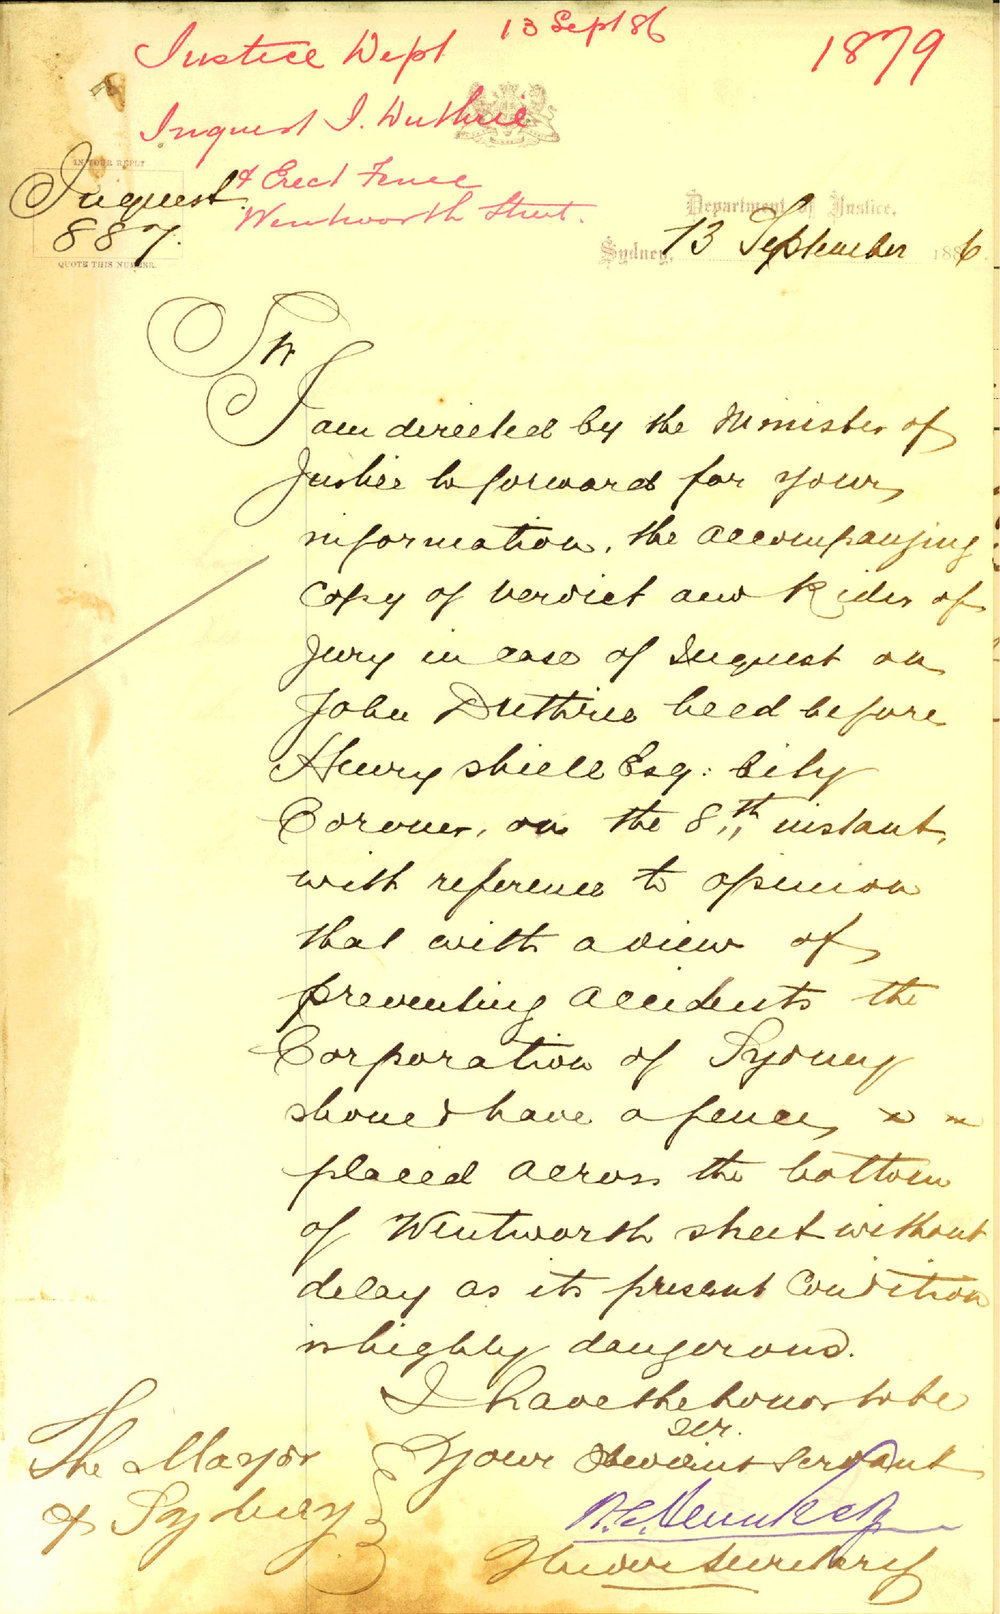 13 Sept 86
1879
Justice Dept
Inquest J. Duthrie
& Erect Fence
Wentworth Street.
IN YOUR REPLY
Inquest
887.
QUOTE THIS NUMBER.
Department of Justice,
Sydney, 13 September 1886.
Sir
I am directed by the Minister of
Justice to forward for your
information, the accompanying
copy of verdict and Rider of
Jury in case of Inquest on
John Duthrie held before
Henry Shiell Esq: City
Coroner, on the 8th instant,
with reference to opinion
that with a view of
preventing accidents the
Corporation of Sydney
should have a fence
placed across the bottom
of Wentworth street without
delay as its present condition
is highly dangerous.
I have the honor to be
Sir.
Your Obedient Servant
Under Secretary
The Mayor
of Sydney